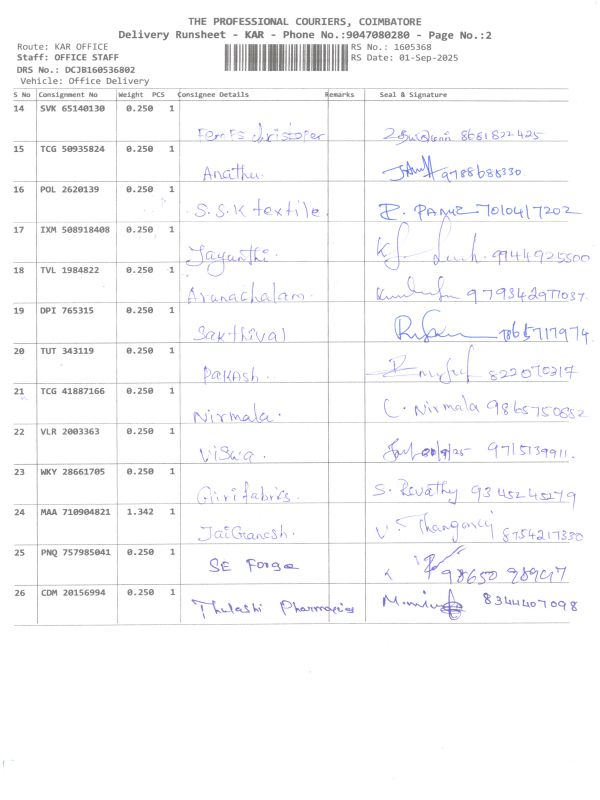 THE PROFESSIONAL COURIERS, COIMBATORE
Delivery Runsheet - KAR - Phone No.:9047080280 - Page No.:2
Route: KAR OFFICE RS No.: 1605368
Staff: OFFICE STAFF RS Date: 01-Sep-2025
DRS No.: DCJB160536802
Vehicle: Office Delivery
S No Consignment No Weight PCS Consignee Details Remarks Seal & Signature
14 SVK 65140130 0.250 1
christoper 8681822425
15 TCG 50935824 0.250 1
Anathu. 9788685330
16 POL 2620139 0.250 1
S.S.K textile. 7010417202
17 IXM 508918408 0.250 1
Jayanthi. 9944925500
18 TVL 1984822 0.250 1
Arunachalam.
19 DPI 765315 0.250 1
Sakthival 7865717974
20 TUT 343119 0.250 1
PaKAsh.
21 TCG 41887166 0.250 1
Nirmala. C. Nirmala 9865750852
22 VLR 2003363 0.250 1
Viswa. 9715139911.
23 WKY 28661705 0.250 1
Giri fabrics. S. Revathy 9345245279
24 MAA 710904821 1.342 1
Jai Ganesh. 8754217330
25 PNQ 757985041 0.250 1
SE Forge 98650
26 CDM 20156994 0.250 1
Thulashi Pharmacies 8344407098